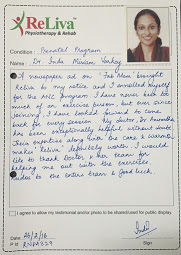 ReLiva
Physiotherapy & Rehab
Condition: Prenatal Program
Name: Dr Indu Miriam Varkey
A newspaper ad on "Fab Mom" brought
Reliva to my notice and I enrolled myself
for the ANC Program. I have never been
much of an exercise person, but ever since
joining, I have looked forward to come
back for every session. My doctor, Dr
has been exceptionally helpful without doubt.
Their expertise along with the care & warmth
makes "Reliva" definitely worth it. I would
like to thank Doctor & her team for
helping me out with the exercises.
Kudos to the entire team & Good luck.
I agree to allow my testimonial and/or photo to be shared/used for public display.
Date: 26/2/16
P #